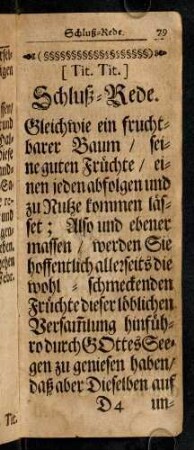 Schluß-Rede. 79
[ Tit. Tit. ]
Schluß-Rede.
Gleichwie ein frucht-
barer Baum / sei-
ne guten Früchte / ei-
nen jeden abfolgen und
zu Nutze kommen läs-
set; Also und ebener
massen / werden Sie
hoffentlich allerseits die
wohl-schmeckenden
Früchte dieser löblichen
Versam̃lung hinfüh-
ro durch GOttes See-
gen zu geniesen haben/
daß aber Dieselben auf
D4 un-